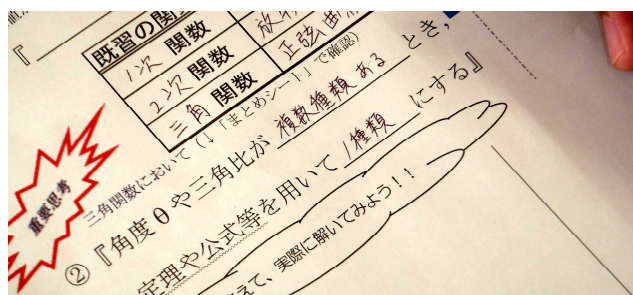 『
既習の関
1次 関数
放
2次 関数
正弦曲
三角 関数
三角関数において (↓「まとめシート」で確認)
重要思考
② 『角度θや三角比が 複数種類ある とき,
定理や公式等を用いて 1種類 にする』
えて、実際に解いてみよう！！